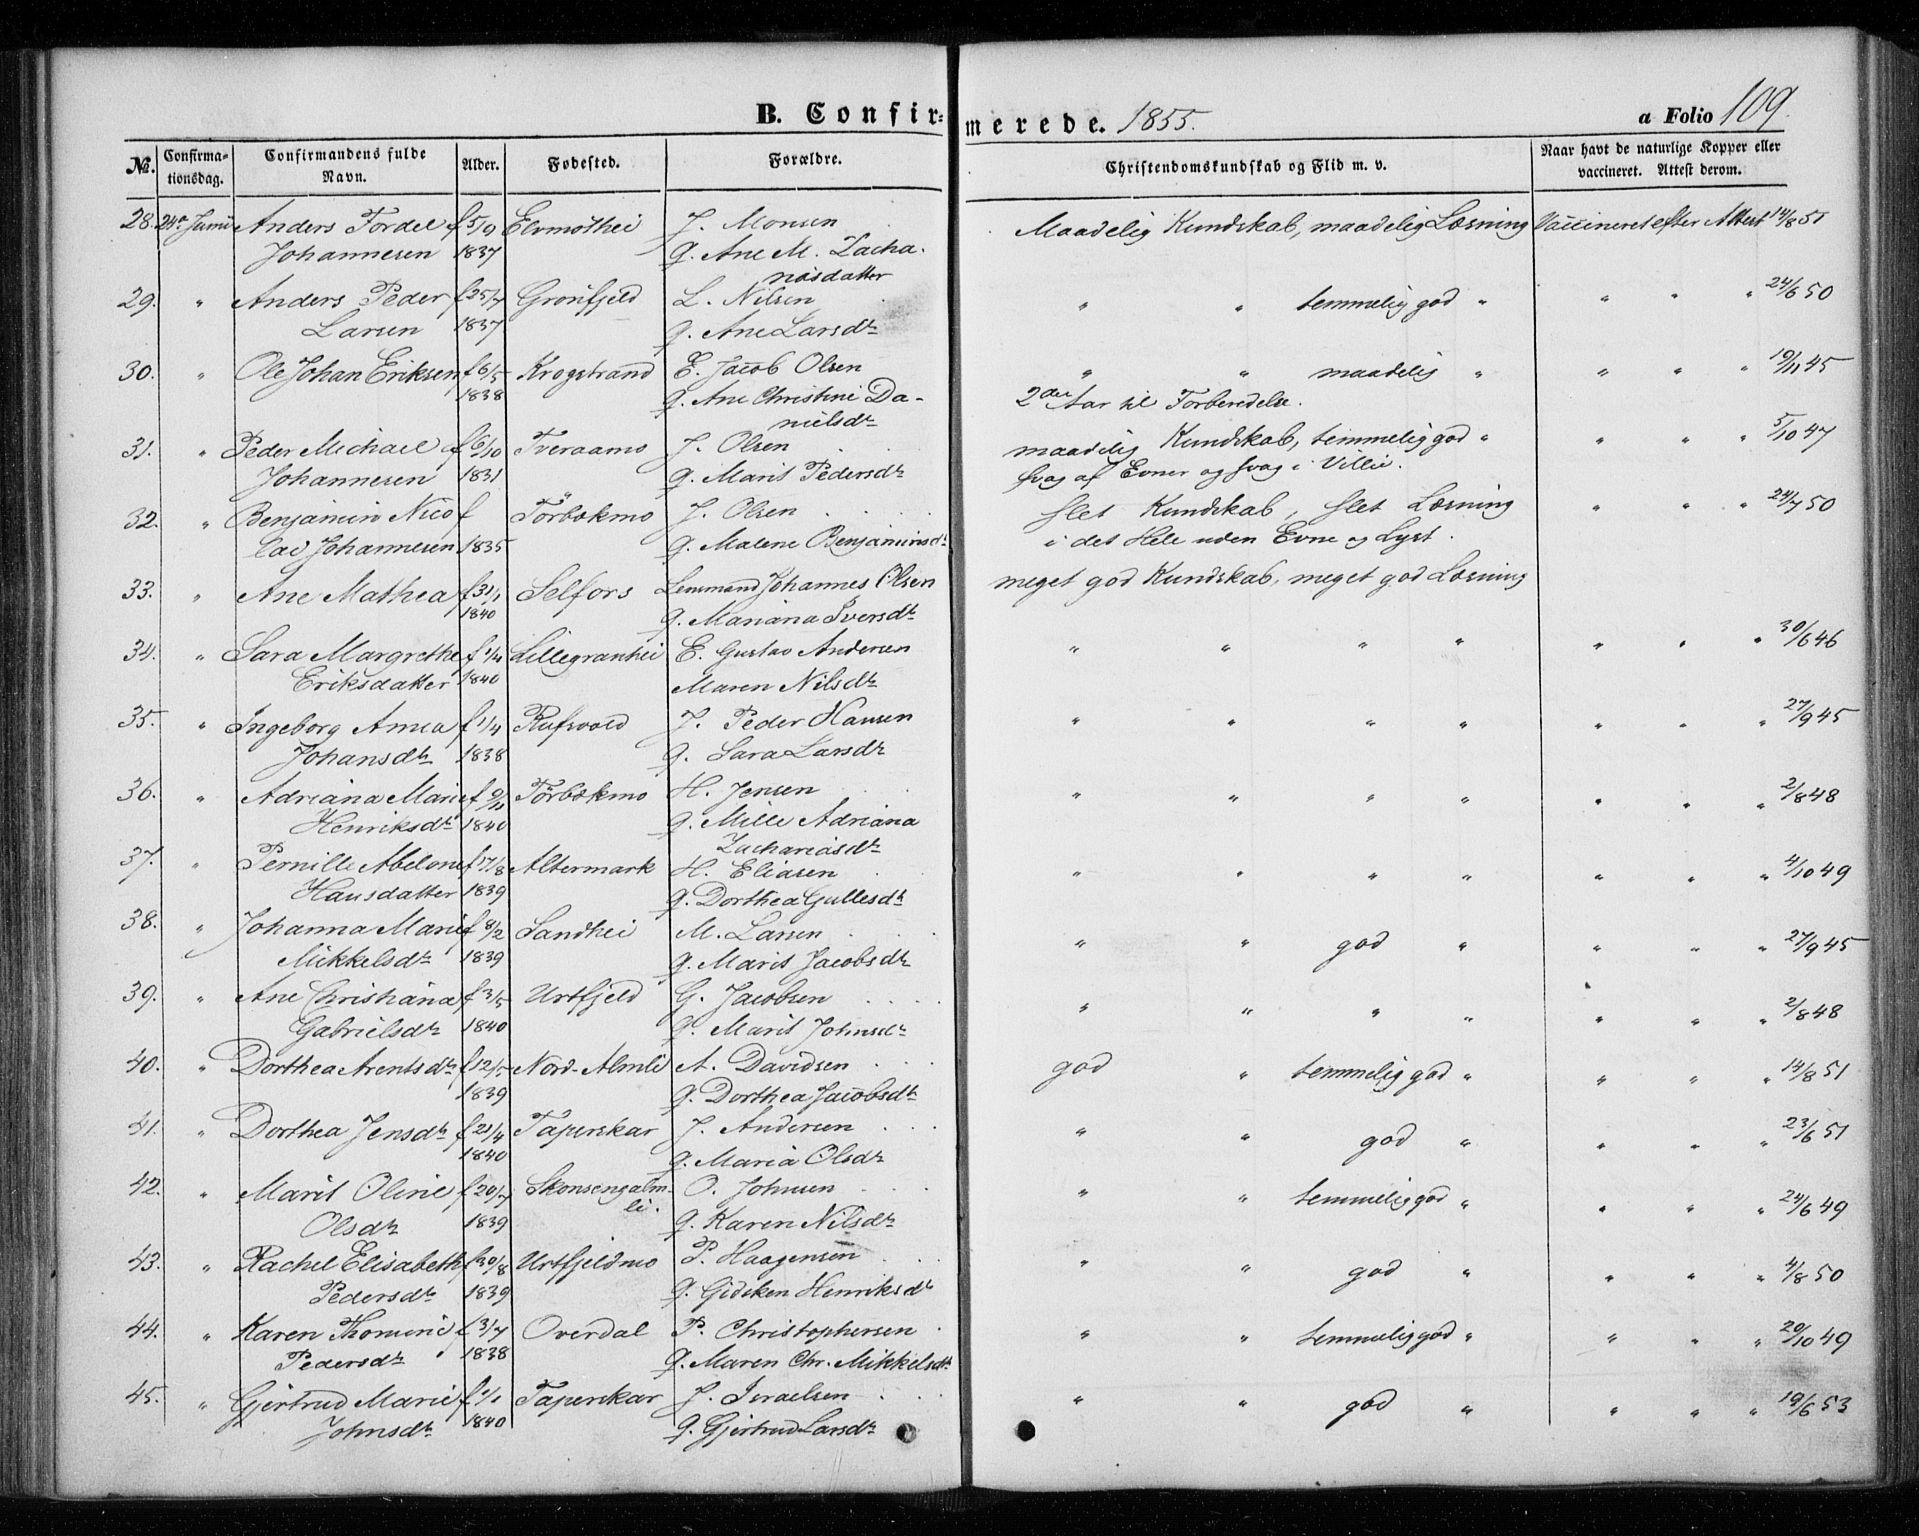 B. Confirmerede. 1855. a Folio 109.
No. Confirmationsdag. Confirmandens fulde Navn. Alder. Fødested. Forældre. Christendomskundskab og Flid m. v. Naar havt de naturlige Kopper eller vaccineret. Attest derom.
28. 24de Junii Anders Tordel f 5/9 Elvmothei J. Monsen Maadelig Kundskab, maadelig Læsning Vaccineret efter Attest 14/8 51
Johannesen 1837 Q. Ane M. Zacha-
riasdatter
29. " Anders Peder f 25/7 Grønfjeld L. Nilsen " " temmelig god " " " " 24/6 50
Larsen 1837 Q. Ane Larsdr
30. " Ole Johan Eriksen f 6/5 Krogstrand E. Jacob Olsen " " maadelig " " " " 19/11 45
1838 Q. Ane Christine Da- 2det Aar til Forberedelse.
nielsdr
31. " Peder Michael f 6/10 Tveraamo J. Olsen maadelig Kundskab, temmelig god " " " " 5/10 47
Johannesen 1831 Q. Marit Pedersdr Svag af Evner og svag i Villie.
32. " Benjamin Nico f Törbækmo J. Olsen slet Kundskab, slet Læsning " " " 24/7 50
lai Johannesen 1835 Q. Malene Benjaminsdr i det Hele uden Evne og Lyst.
33. " Ane Mathea f 31/1 Selfors Lensmand Johannes Olsen meget god Kundskab, meget god Læsning
1840 Q. Mariana Iversdr
34. " Sara Margrethe f 1/4 Lillegranhei E. Gustav Andersen " " " " " " " 30/6 46
Eriksdatter 1840 Maren Nilsdr
35. " Ingeborg Annea f 1/4 Rufsvold J. Peder Hansen " " " " " " " 27/9 45
Johansdr 1838 Q. Sara Larsdr
36. " Adriana Marie f 9/11 Törbækmo H. Jensen " " " " " " " 2/8 48
Henriksdr 1840 Q. Mille Adriana
Zachariasdr
37. " Pernille Abelone f 17/8 Altermark H. Eliasen " " " " " " " 4/10 49
Hansdatter 1839 Q. Dorthea Gullesdr
38. " Johanna Marie f 8/2 Sandhei M. Larsen " " god " " " " 27/9 45
Mikkelsdr 1839 Q. Marit Jacobsdr
39. " Ane Christiana f 3/5 Urtfjeld G. Jacobsen " " " " " " " 2/8 48
Gabrielsdr 1840 Q. Marit Johnsdr
40. " Dorthea Arentsdr f 12/5 Nord-Almli A. Davidsen god " temmelig god " " " " 14/8 51
1839 Q. Dorthea Jacobsdr
41. " Dorthea Jensdr f 21/4 Taperskar J. Andersen " " god " " " " 23/6 51
1840 Q. Maria Olsdr
42. " Marit Oline f 20/7 Skonsengalm- O. Johnsen " " temmelig god " " " " 24/6 49
li.
Olsdr 1839 Q. Karen Nilsdr
43. " Rachel Elisabeth f 30/8 Urtfjeldmo P. Haagensen " " god " " " " 4/8 50
Pedersdr 1839 Q. Gidsken Henriksdr
44. " Karen Thomine f 3/7 Overdal P. Christophersen " " temmelig god " " " " 20/10 49
Pedersdr 1838 Q. Maren Chr. Mikkelsdr
45. " Gjertrud Marie f 1/1 Taperskar J. Israelsen " " god " " " " 19/6 53
Johnsdr 1840 Q. Gjertrud Larsdr